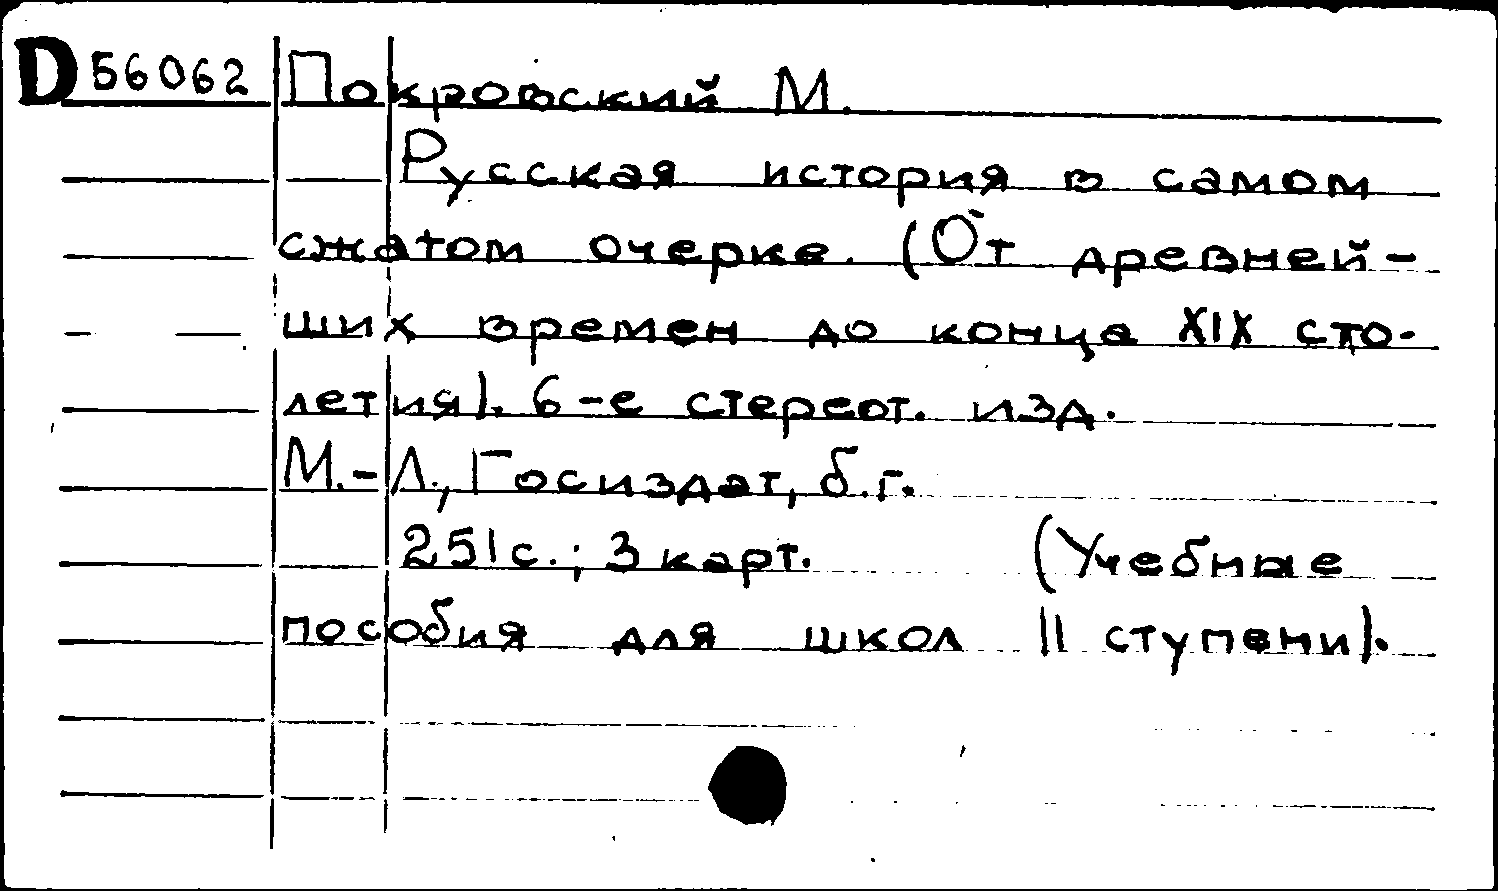 D 56062 Покровский М.
Русская история в самом
сжатом очерке. (От древней-
ших времен до конца XIX сто-
летия). 6-е стереот. изд.
М.-Л., Госиздат, б.г.
251 с.; 3 карт. (Учебные
пособия для школ II ступени).